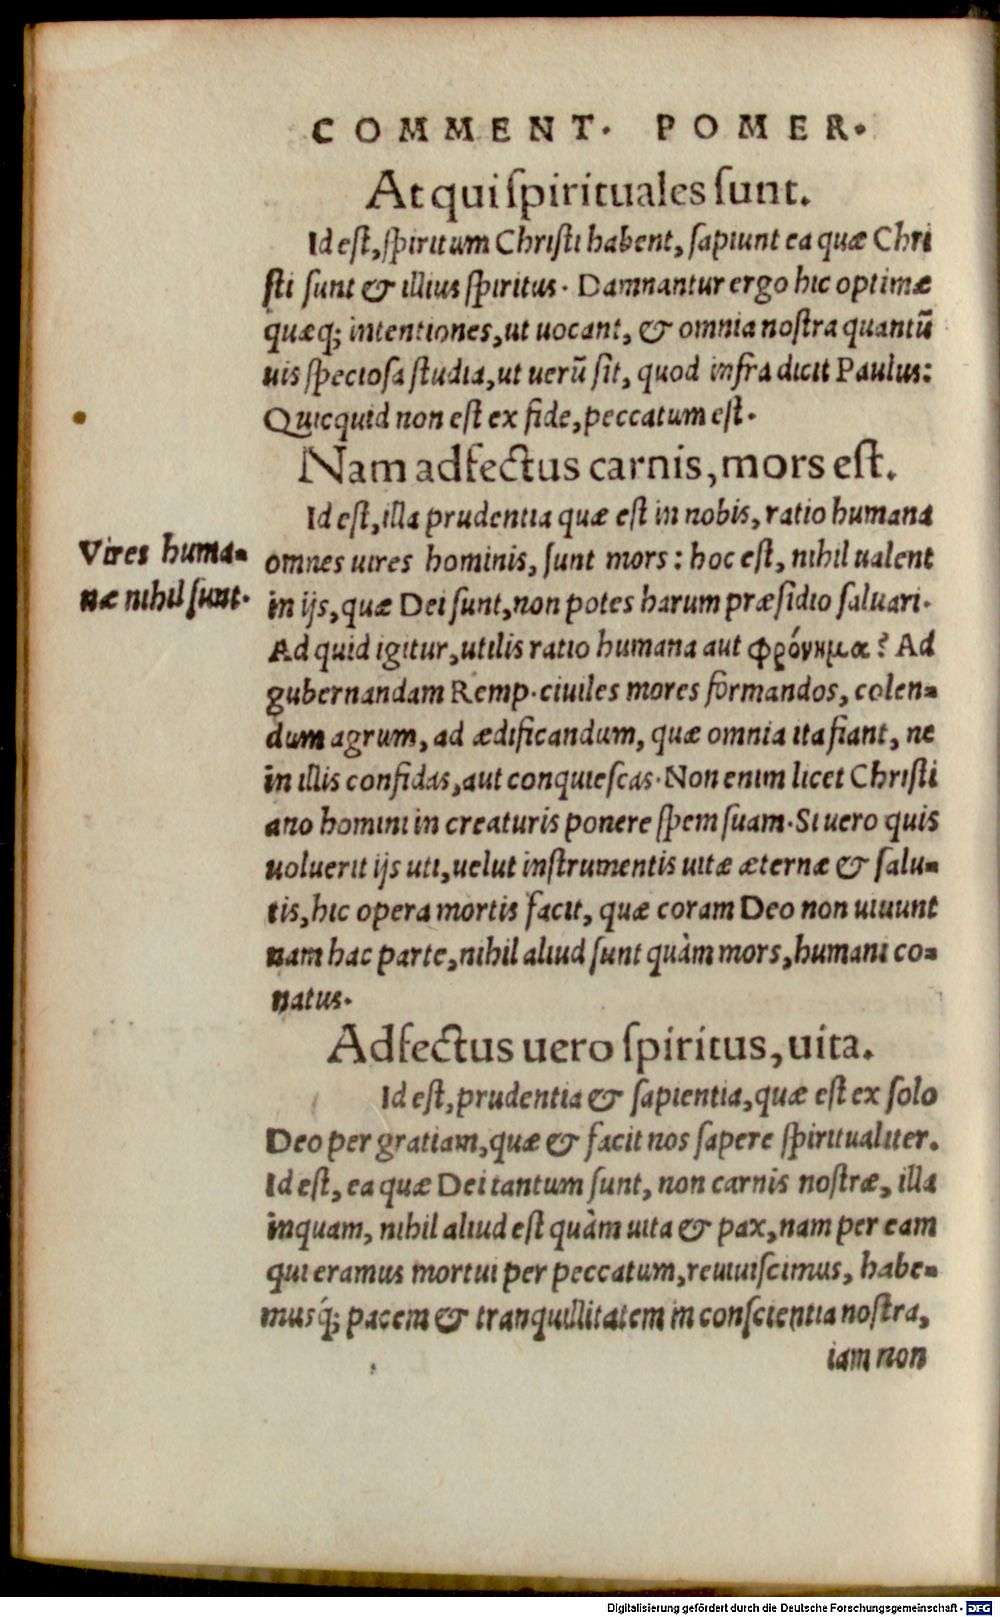 COMMENT. POMER.
At qui ſpirituales ſunt.
Id eſt, ſpiritum Chriſti habent, ſapiunt ea quæ Chri
ſti ſunt & illius ſpiritus. Damnantur ergo hic optimæ
quæq; intentiones, ut uocant, & omnia noſtra quantũ
uis ſpecioſa ſtudia, ut uerũ ſit, quod infra dicit Paulus:
Quicquid non eſt ex fide, peccatum eſt.
Nam adfectus carnis, mors eſt.
Id eſt, illa prudentia quæ eſt in nobis, ratio humana
Vires huma-
næ nihil ſunt.
omnes uires hominis, ſunt mors: hoc eſt, nihil ualent
in ijs, quæ Dei ſunt, non potes harum præſidio ſaluari.
Ad quid igitur, utilis ratio humana aut φρόνημα? Ad
gubernandam Remp. ciuiles mores formandos, colen-
dum agrum, ad ædificandum, quæ omnia ita fiant, ne
in illis confidas, aut conquieſcas. Non enim licet Chriſti
ano homini in creaturis ponere ſpem ſuam. Si uero quis
uoluerit ijs uti, uelut inſtrumentis uitæ æternæ & ſalu-
tis, hic opera mortis facit, quæ coram Deo non uiuunt
nam hac parte, nihil aliud ſunt quàm mors, humani co-
natus.
Adfectus uero ſpiritus, uita.
Id eſt, prudentia & ſapientia, quæ eſt ex ſolo
Deo per gratiam, quæ & facit nos ſapere ſpiritualiter.
Id eſt, ea quæ Dei tantum ſunt, non carnis noſtræ, illa
inquam, nihil aliud eſt quàm uita & pax, nam per eam
qui eramus mortui per peccatum, reuiuiſcimus, habe-
muśq; pacem & tranquillitatem in conſcientia noſtra,
iam non
Digitalisierung gefördert durch die Deutsche Forschungsgemeinschaft - DFG